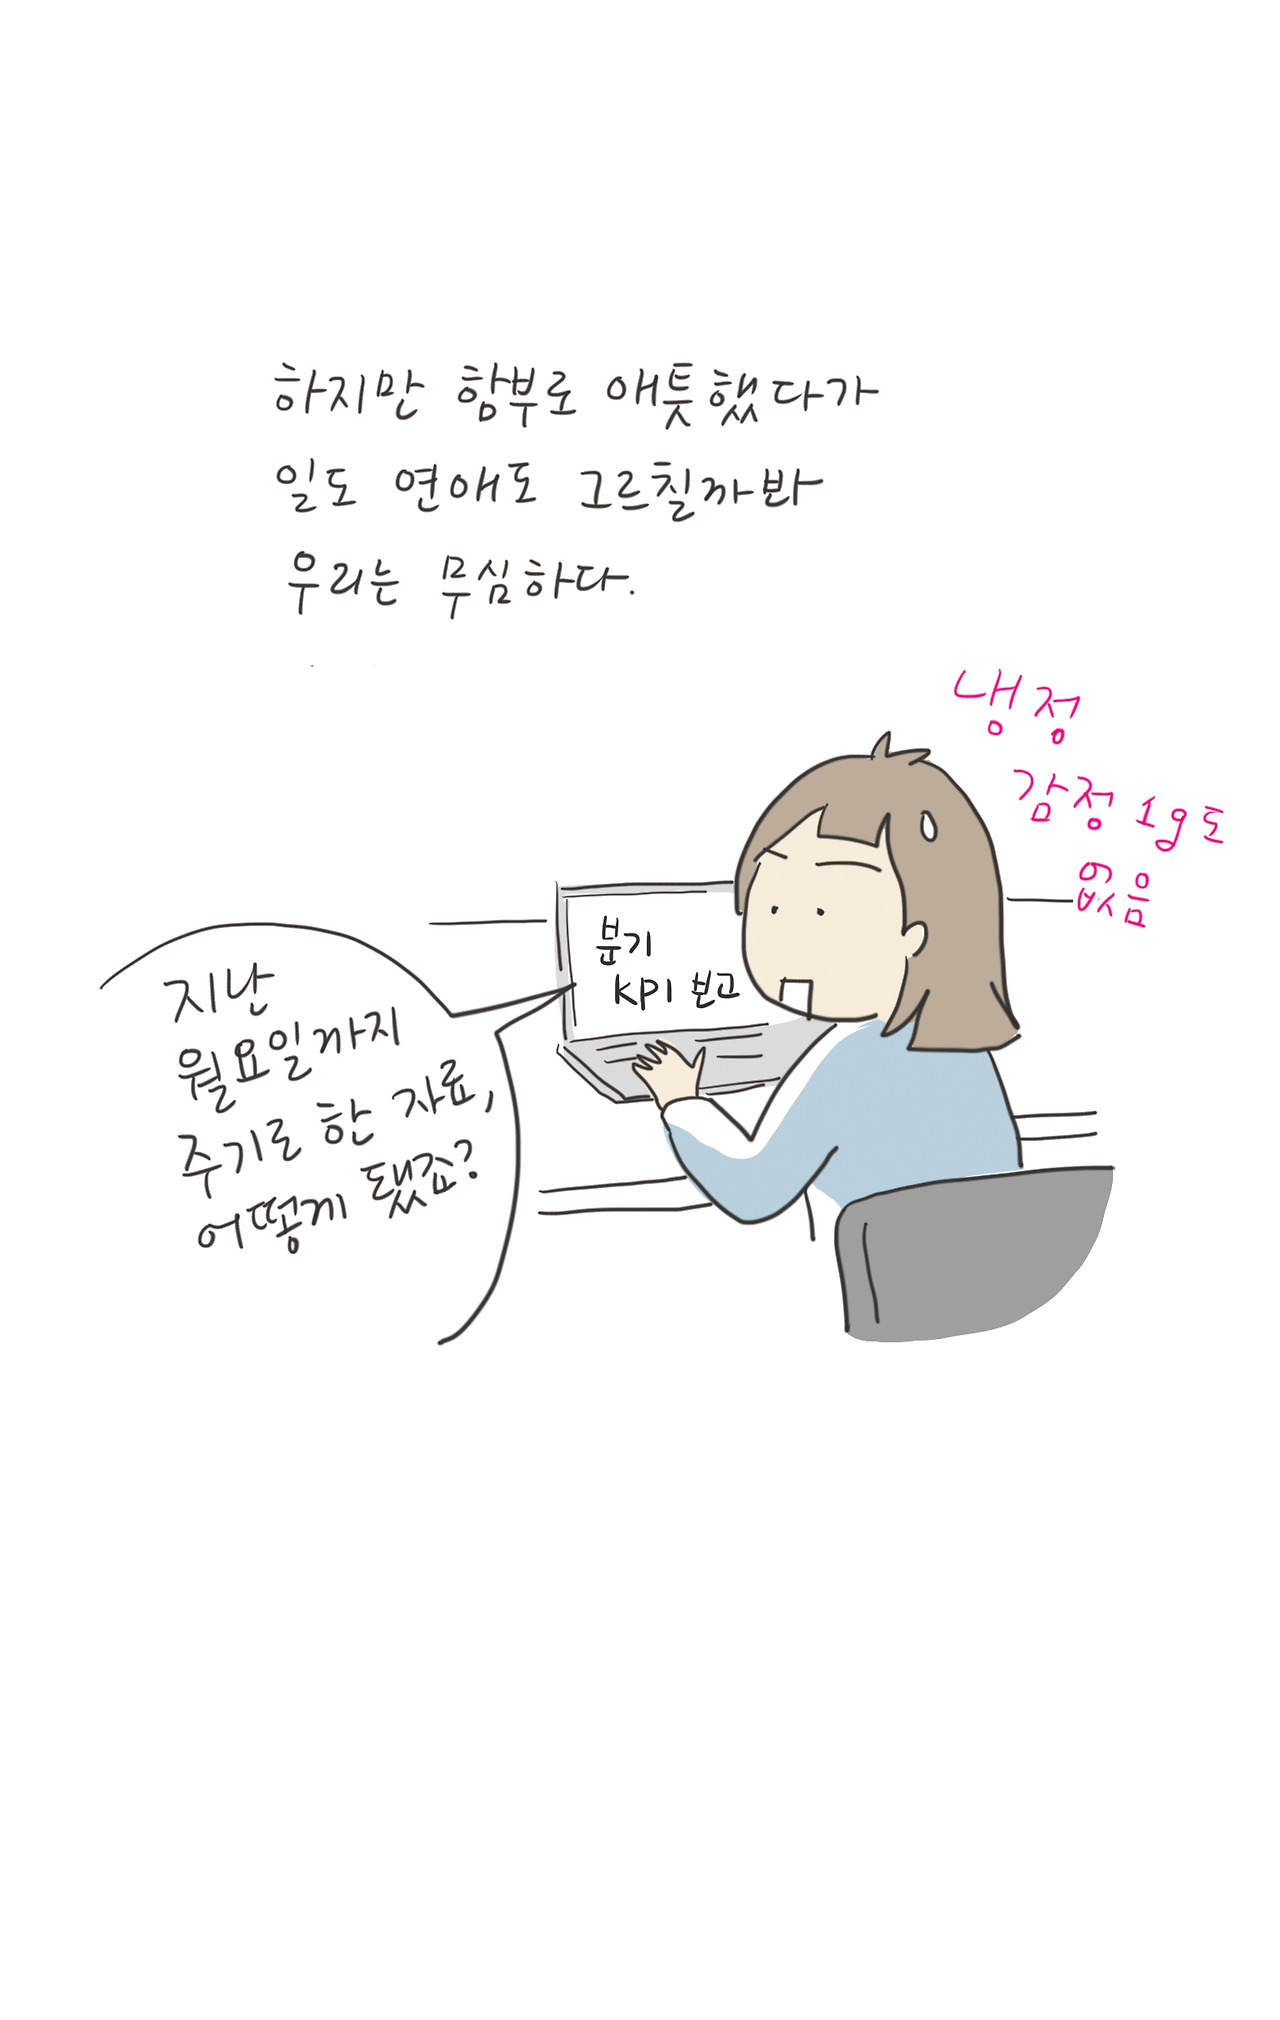 하지만 함부로 애틋했다가
일도 연애도 그르칠까봐
우리는 무심하다.
냉정
감정 1g도
없음
분기
KPI 보고
지난
월요일까지
주기로 한 자료,
어떻게 됐죠?